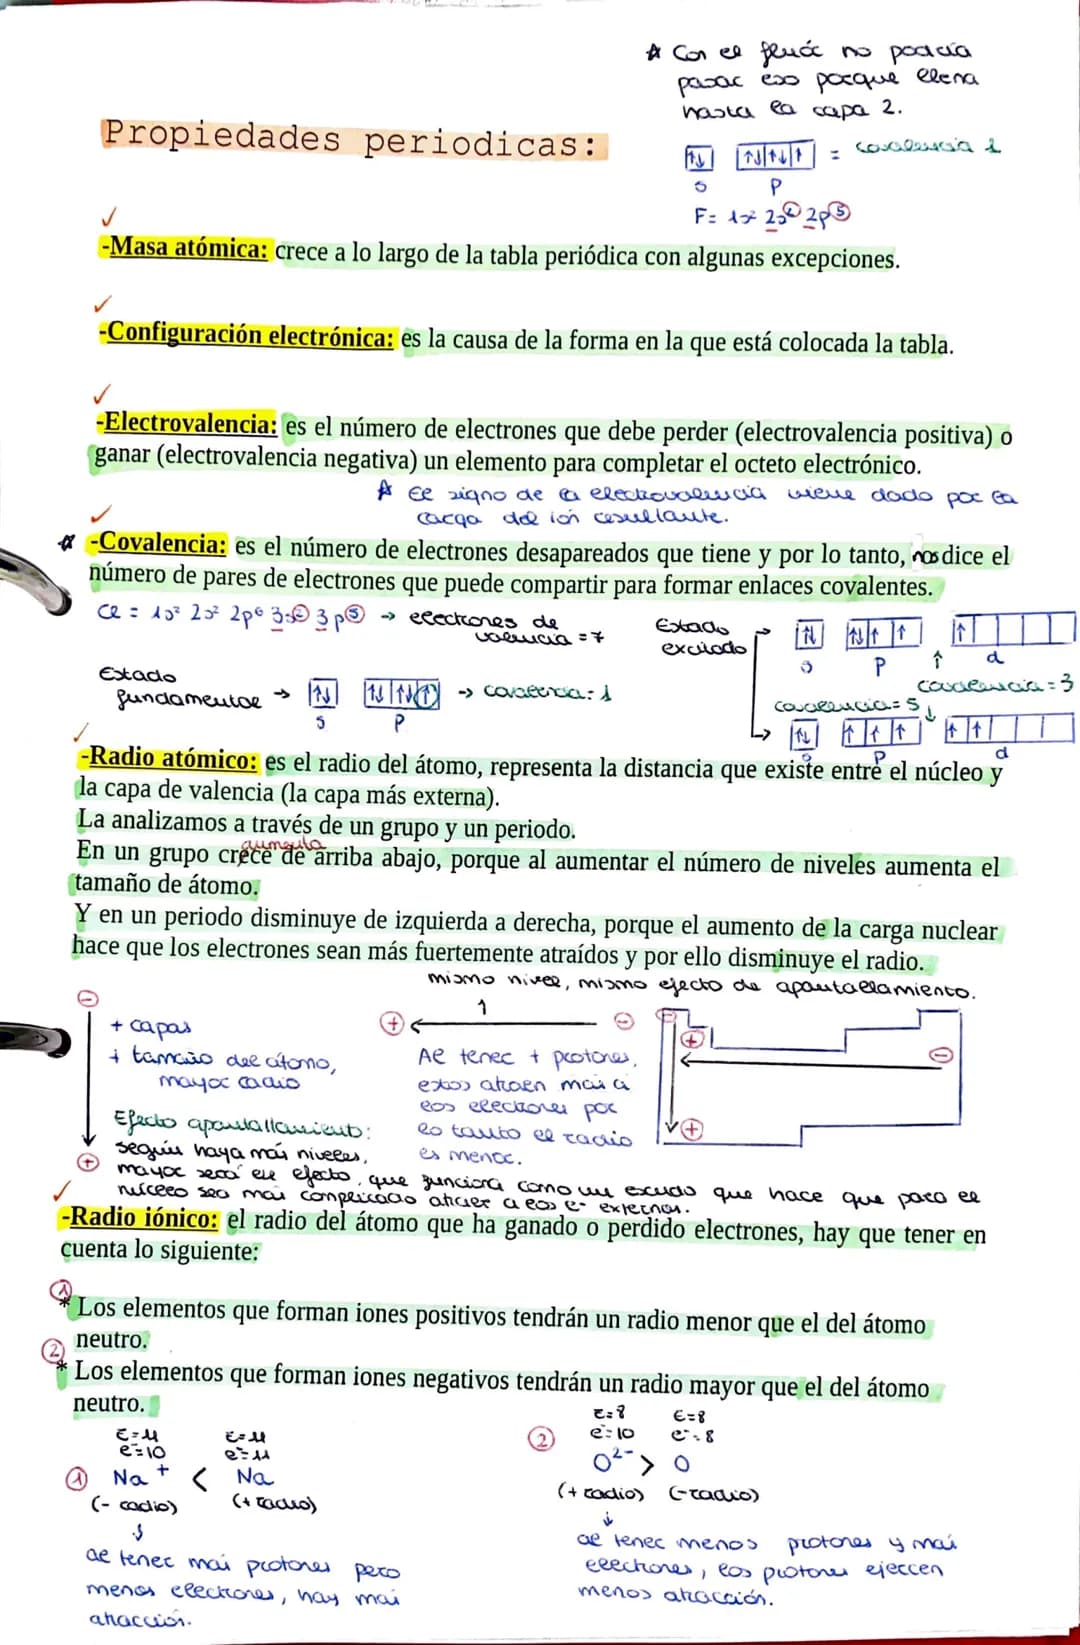 * Con el fluór no podría
pasar eso porque llena
hasta la capa 2.
Propiedades periodicas:
↑↓ ↑↓ ↑↓ ↑ = covalencia 1
s p
F= 1s² 2s② 2p⑤
-Masa atómica: crece a lo largo de la tabla periódica con algunas excepciones.
-Configuración electrónica: es la causa de la forma en la que está colocada la tabla.
-Electrovalencia: es el número de electrones que debe perder (electrovalencia positiva) o
ganar (electrovalencia negativa) un elemento para completar el octeto electrónico.
* El signo de la electrovalencia viene dado por la
carga del ión resultante.
* -Covalencia: es el número de electrones desapareados que tiene y por lo tanto, nos dice el
número de pares de electrones que puede compartir para formar enlaces covalentes.
Cl = 1s² 2s² 2p⁶ 3s② 3p⑤ → electrones de
valencia = 7
Estado
excitado
s p d
covalencia = 3
Estado
fundamental → ↑↓ ↑↓ ↑↓ ↑ → covalencia: 1
s p
covalencia = 5
s p d
-Radio atómico: es el radio del átomo, representa la distancia que existe entre el núcleo y
la capa de valencia (la capa más externa).
La analizamos a través de un grupo y un periodo.
aumenta
En un grupo crece de arriba abajo, porque al aumentar el número de niveles aumenta el
tamaño de átomo.
Y en un periodo disminuye de izquierda a derecha, porque el aumento de la carga nuclear
hace que los electrones sean más fuertemente atraídos y por ello disminuye el radio.
mismo nivel, mismo efecto de apantallamiento.
+ capas
+ tamaño del átomo,
mayor radio
Al tener + protones,
estos atraen más a
los electrones por
lo tanto el radio
es menor.
Efecto apantallamiento:
según haya más niveles,
mayor será ese efecto, que funciona como un escudo que hace que para el
núcleo sea más complicado atraer a los e⁻ externos.
-Radio iónico: el radio del átomo que ha ganado o perdido electrones, hay que tener en
cuenta lo siguiente:
①
* Los elementos que forman iones positivos tendrán un radio menor que el del átomo
neutro.
②
* Los elementos que forman iones negativos tendrán un radio mayor que el del átomo
neutro.
Z=11 Z=11
e⁻=10 e⁻=11
① Na⁺ < Na
(- radio) (+ radio)
al tener más protones pero
menos electrones, hay más
atracción.
Z=8 Z=8
e⁻=10 e⁻=8
② O²⁻ > O
(+ radio) (- radio)
al tener menos protones y más
electrones, los protones ejercen
menos atracción.